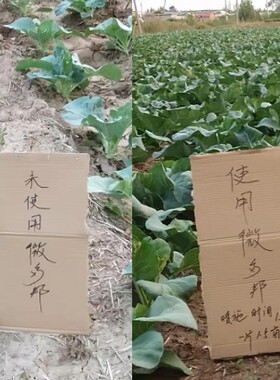 未使用
微多邦
使用
微多邦
喷施时间